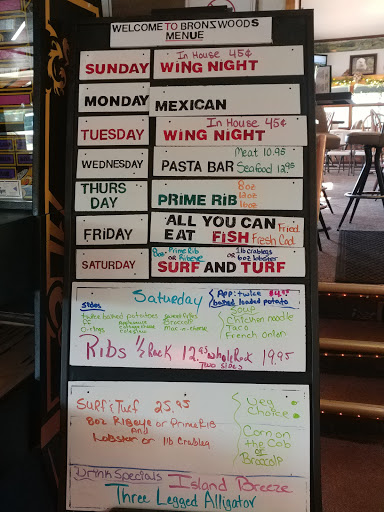 WELCOME TO BRONZWOODS
MENUE
SUNDAY In House 45¢
WING NIGHT
MONDAY MEXICAN
TUESDAY In House 45¢
WING NIGHT
WEDNESDAY PASTA BAR Meat 10.95
Seafood 12.95
THURS
DAY PRIME RIB 8oz
12oz
16oz
FRiDAY ALL YOU CAN
EAT FISH Fried
Fresh Cod
SATURDAY 8oz Prime Rib
or Ribeye or 1lb crablegs
6oz lobster
SURF AND TURF
Saturday
App: twice $4.95
baked loaded potato
Sides
twice baked potatoes
FF
O-rings
Applesauce
cottage cheese
coleslaw
sweet fries
Broccoli
Mac-n-cheese
Soup
Chicken noodle
Taco
French onion
Ribs 1/2 Rack 12.95 Whole Rack 19.95
TWO SIDES
Surf & Turf 25.95
8oz Ribeye or Prime Rib
and
Lobster or 1lb Crableg
Veg
Choice
Corn on
the Cob
or
Broccoli
Drink Specials Island Breeze
Three Legged Alligator